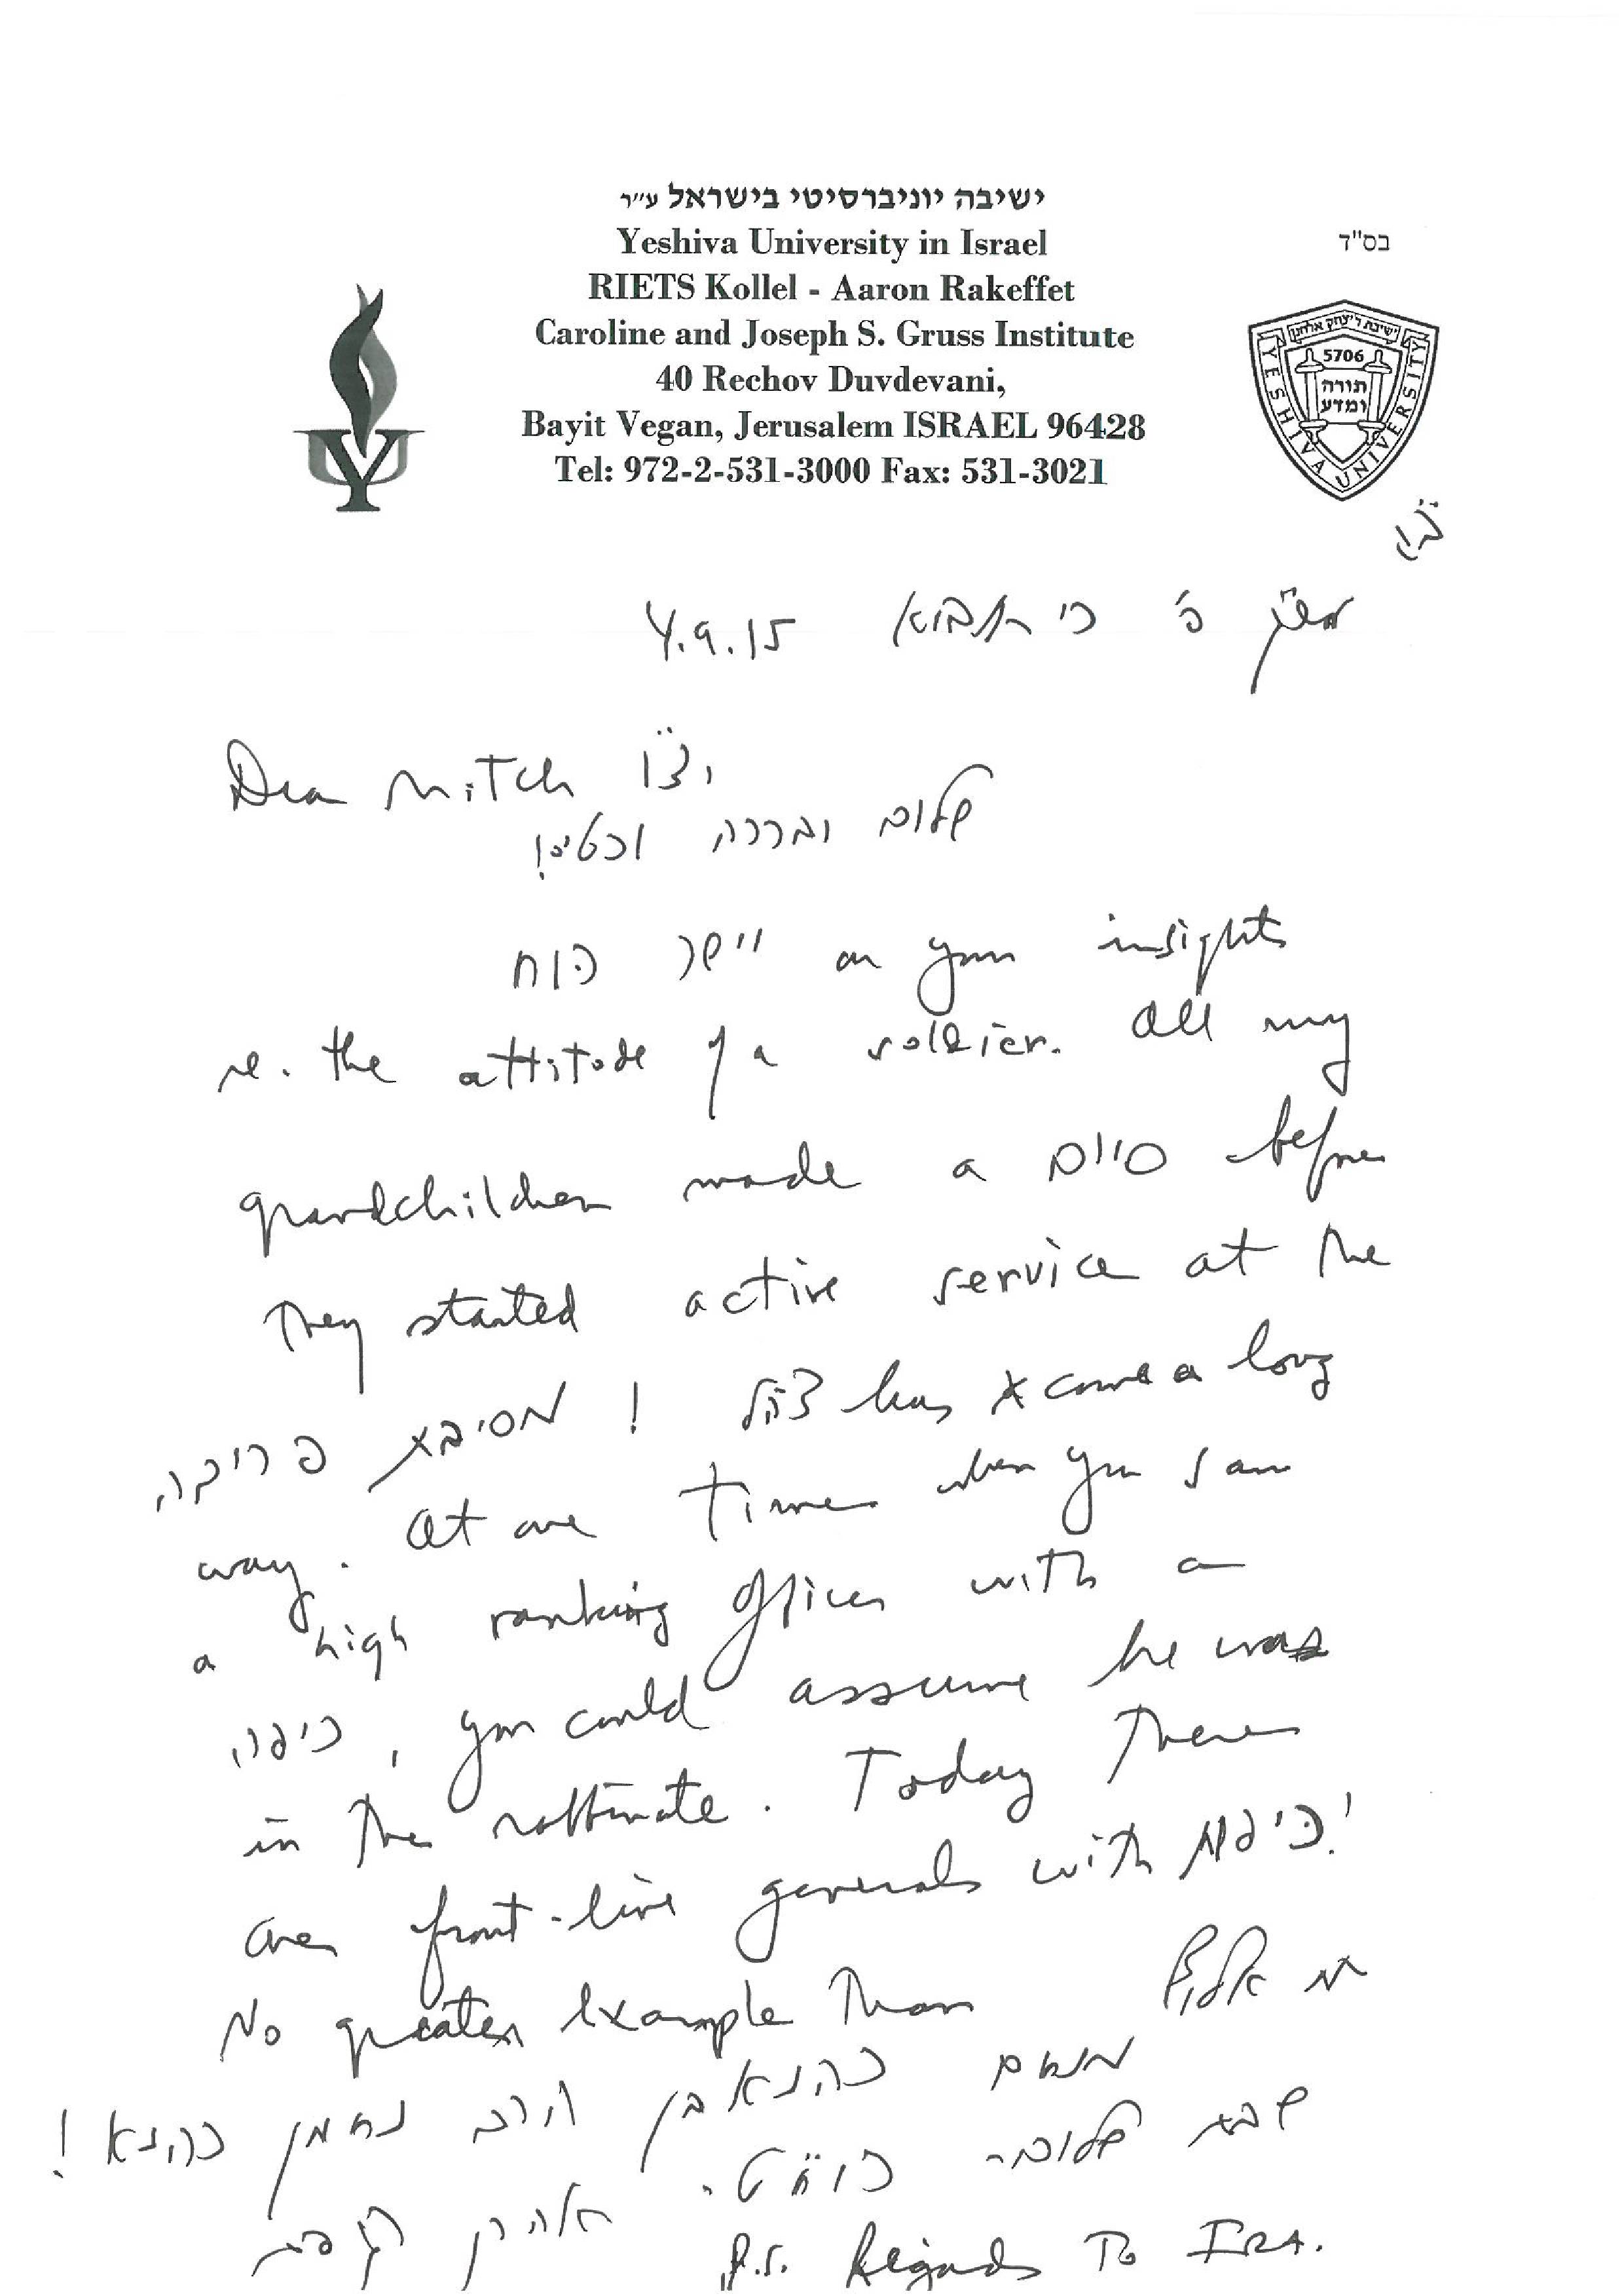 ישיבה יוניברסיטי בישראל ע״ר
Yeshiva University in Israel
בס"ד
RIETS Kollel - Aaron Rakeffet
Caroline and Joseph S. Gruss Institute
40 Rechov Duvdevani,
Bayit Vegan, Jerusalem ISRAEL 96428
Tel: 972-2-531-3000 Fax: 531-3021
ישיבת ר' יצחק אלחנן
5706
תורה
ומדע
YESHIVA UNIVERSITY
כי תבוא 4.9.15
Dear Mitch
שלום וברכה וכט"ס!
יישר כוח on your insights
re. the attitude of a soldier. All my
grandchildren made a סיום before
they started active service at the
מסיבת פרידה! צה"ל has come a long
way. At one time when you saw
a high ranking officer with a
כיפה, you could assume he was
in the rabbinate. Today there
are front-line generals with כיפות!
No greater example than תת אלוף
כהנא בן הרב נחמן כהנא!
שבת שלום - כוח"ט.
אהרן רקפת
P.S. Regards to IRA.